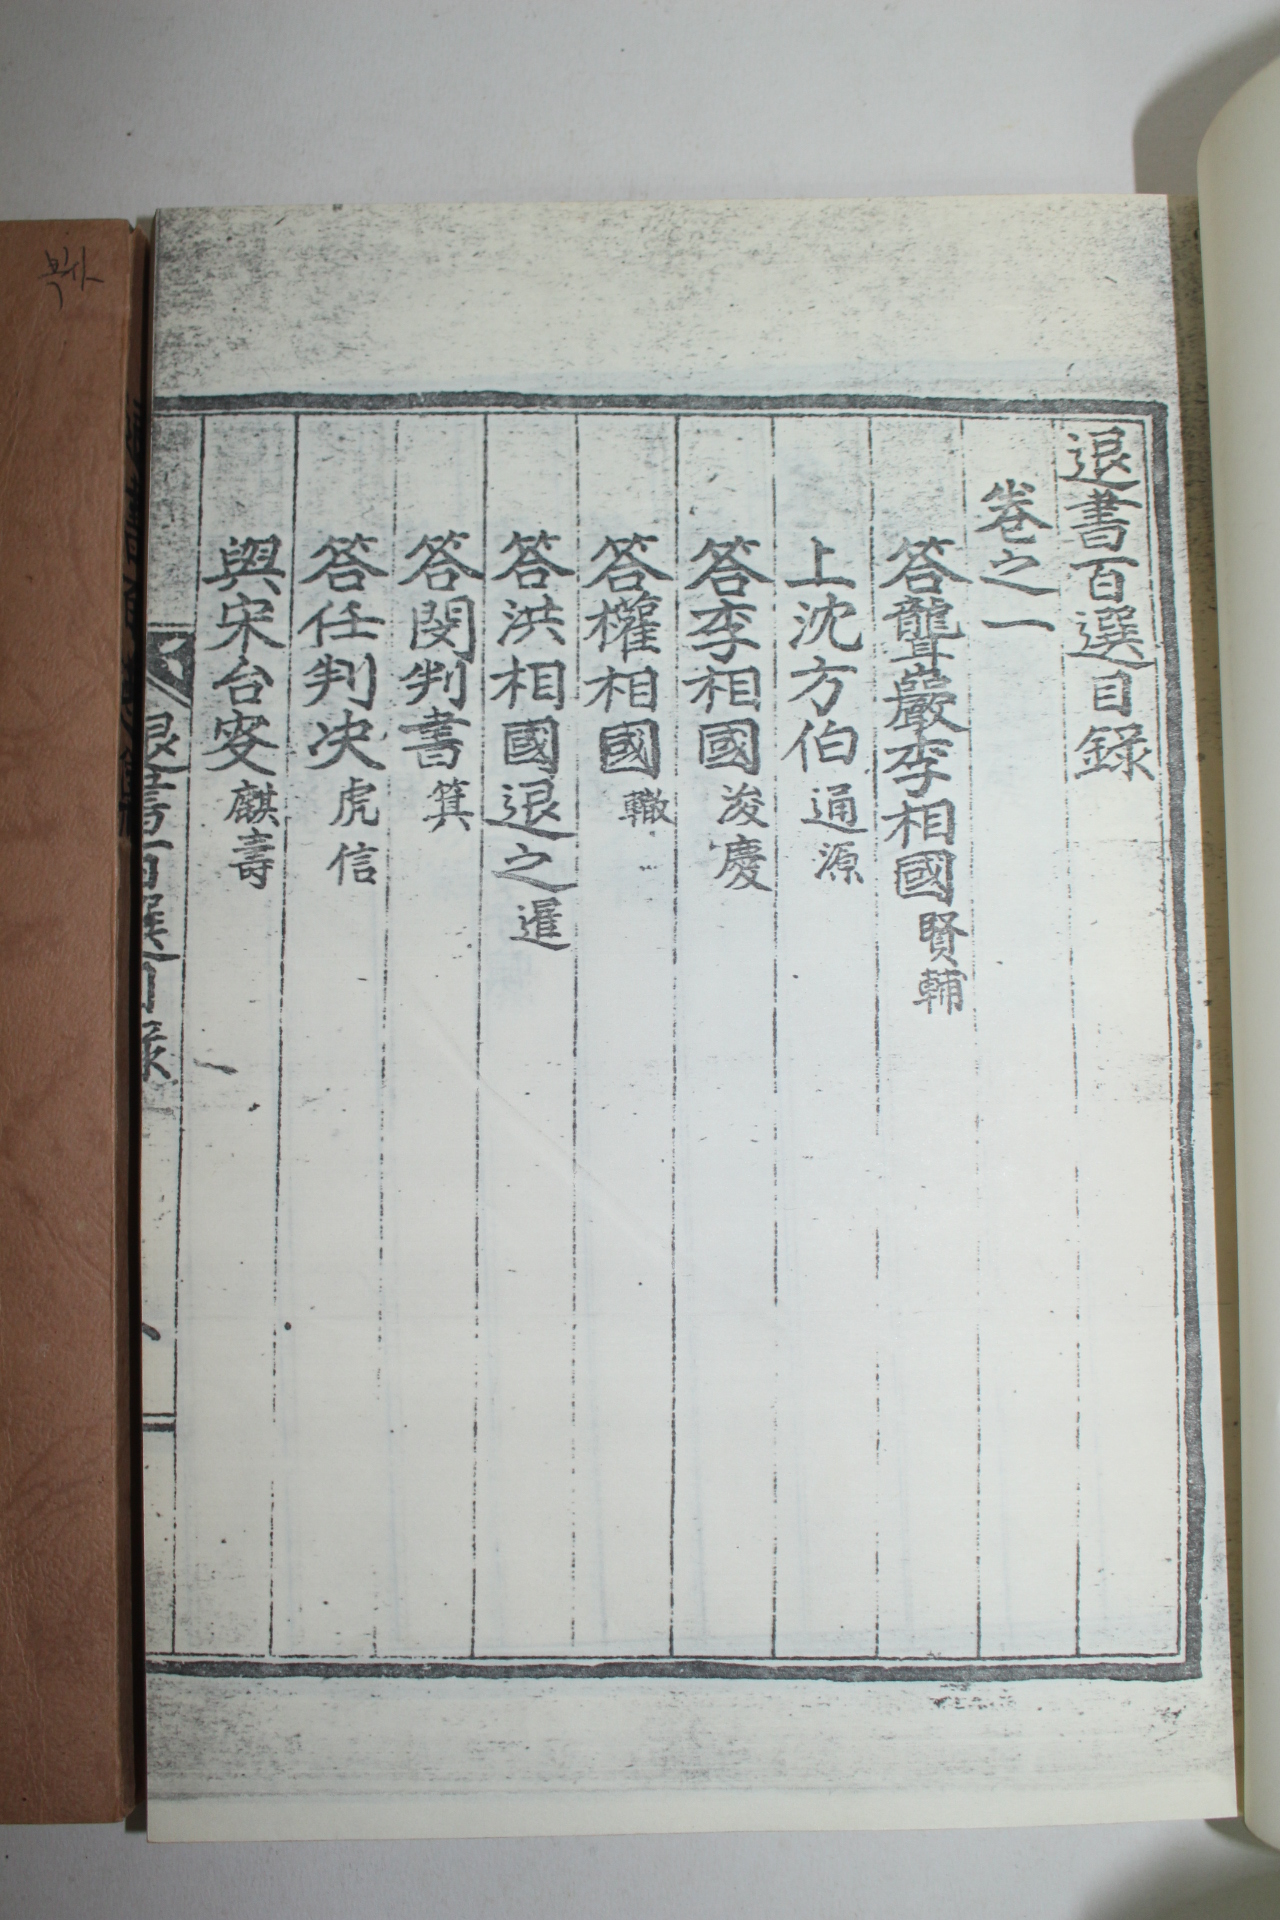 退書百選目録
卷之一
答聾巖李相國 賢輔
上沈方伯 通源
答李相國 浚慶
答權相國 轍
答洪相國退之 暹
答閔判書 箕
答任判决 虎信
與宋台叟 麒壽
退書百選目録